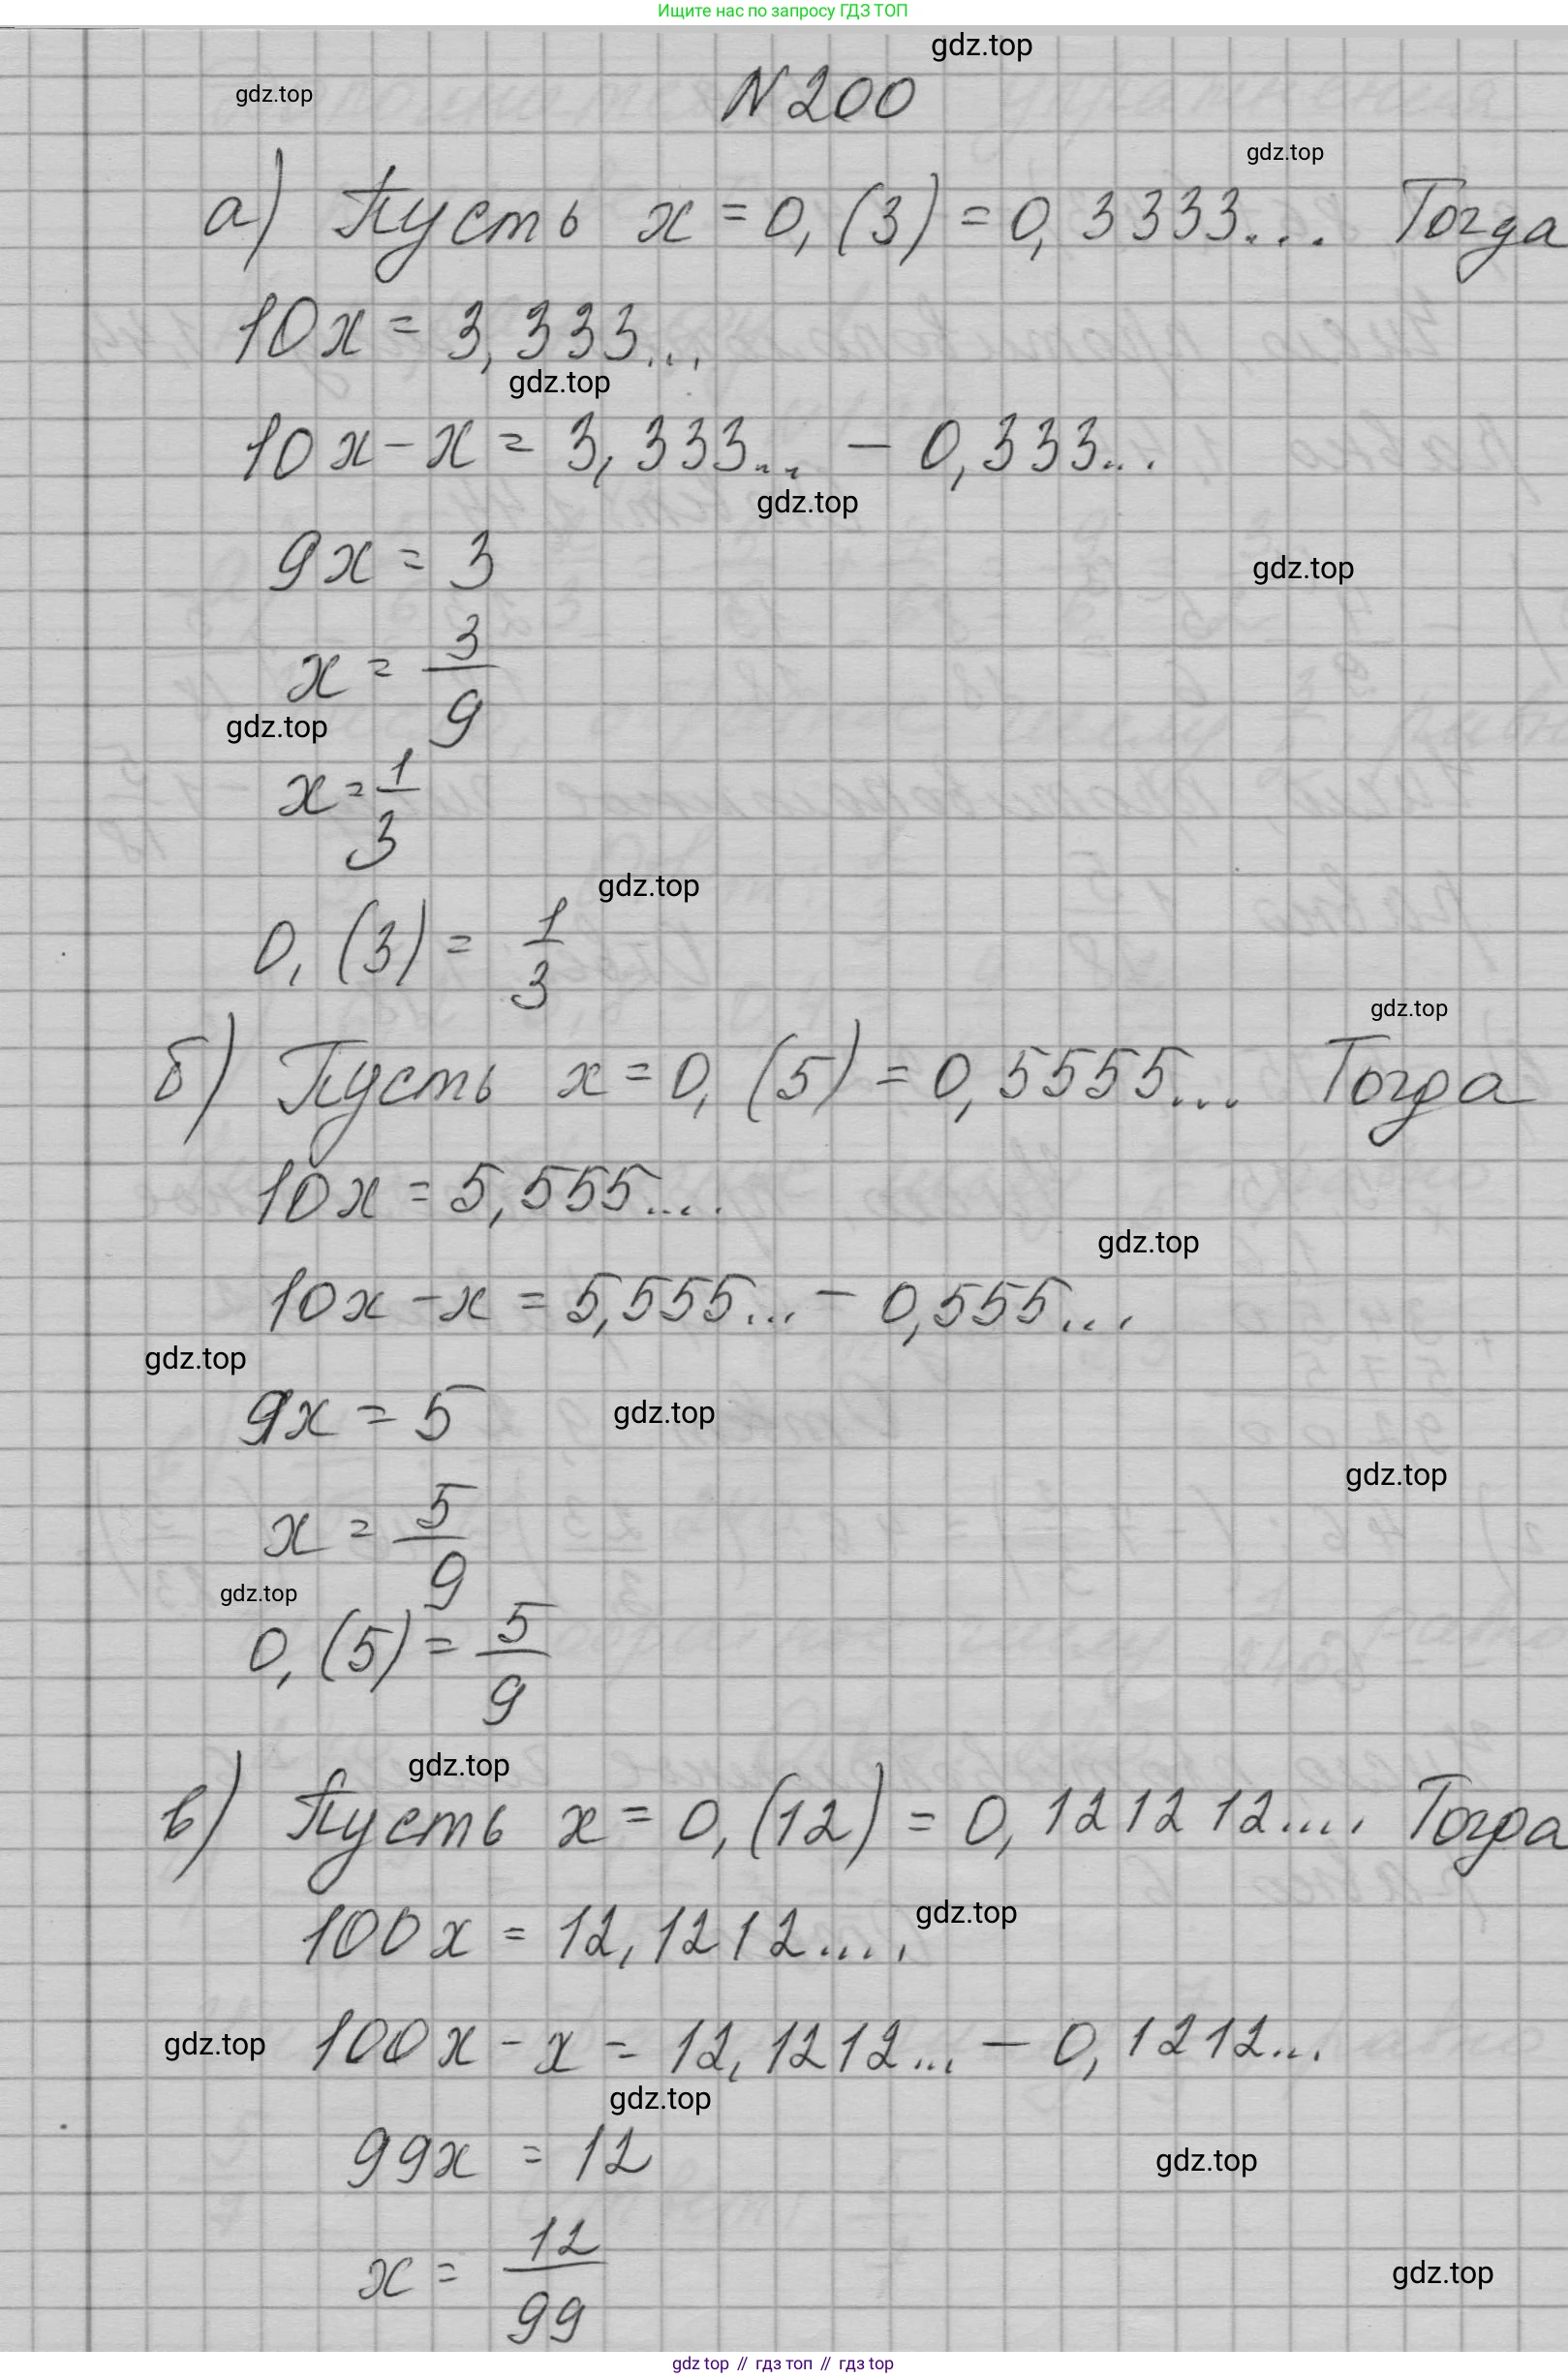 Ищите нас по запросу ГДЗ ТОП
gdz.top
N 200
gdz.top
gdz.top
а) Пусть x = 0,(3) = 0,3333... Тогда
10x = 3,333...
gdz.top
10x - x = 3,333... - 0,333...
gdz.top
9x = 3
gdz.top
x = 3/9
gdz.top
x = 1/3
gdz.top
0,(3) = 1/3
gdz.top
б) Пусть x = 0,(5) = 0,5555... Тогда
10x = 5,555....
gdz.top
10x - x = 5,555... - 0,555...
gdz.top
9x = 5
gdz.top
gdz.top
x = 5/9
gdz.top
0,(5) = 5/9
gdz.top
в) Пусть x = 0,(12) = 0,121212.... Тогда
100x = 12,1212....
gdz.top
gdz.top
100x - x = 12,1212... - 0,1212...
gdz.top
99x = 12
gdz.top
x = 12/99
gdz.top
gdz top // гдз топ // гдз top